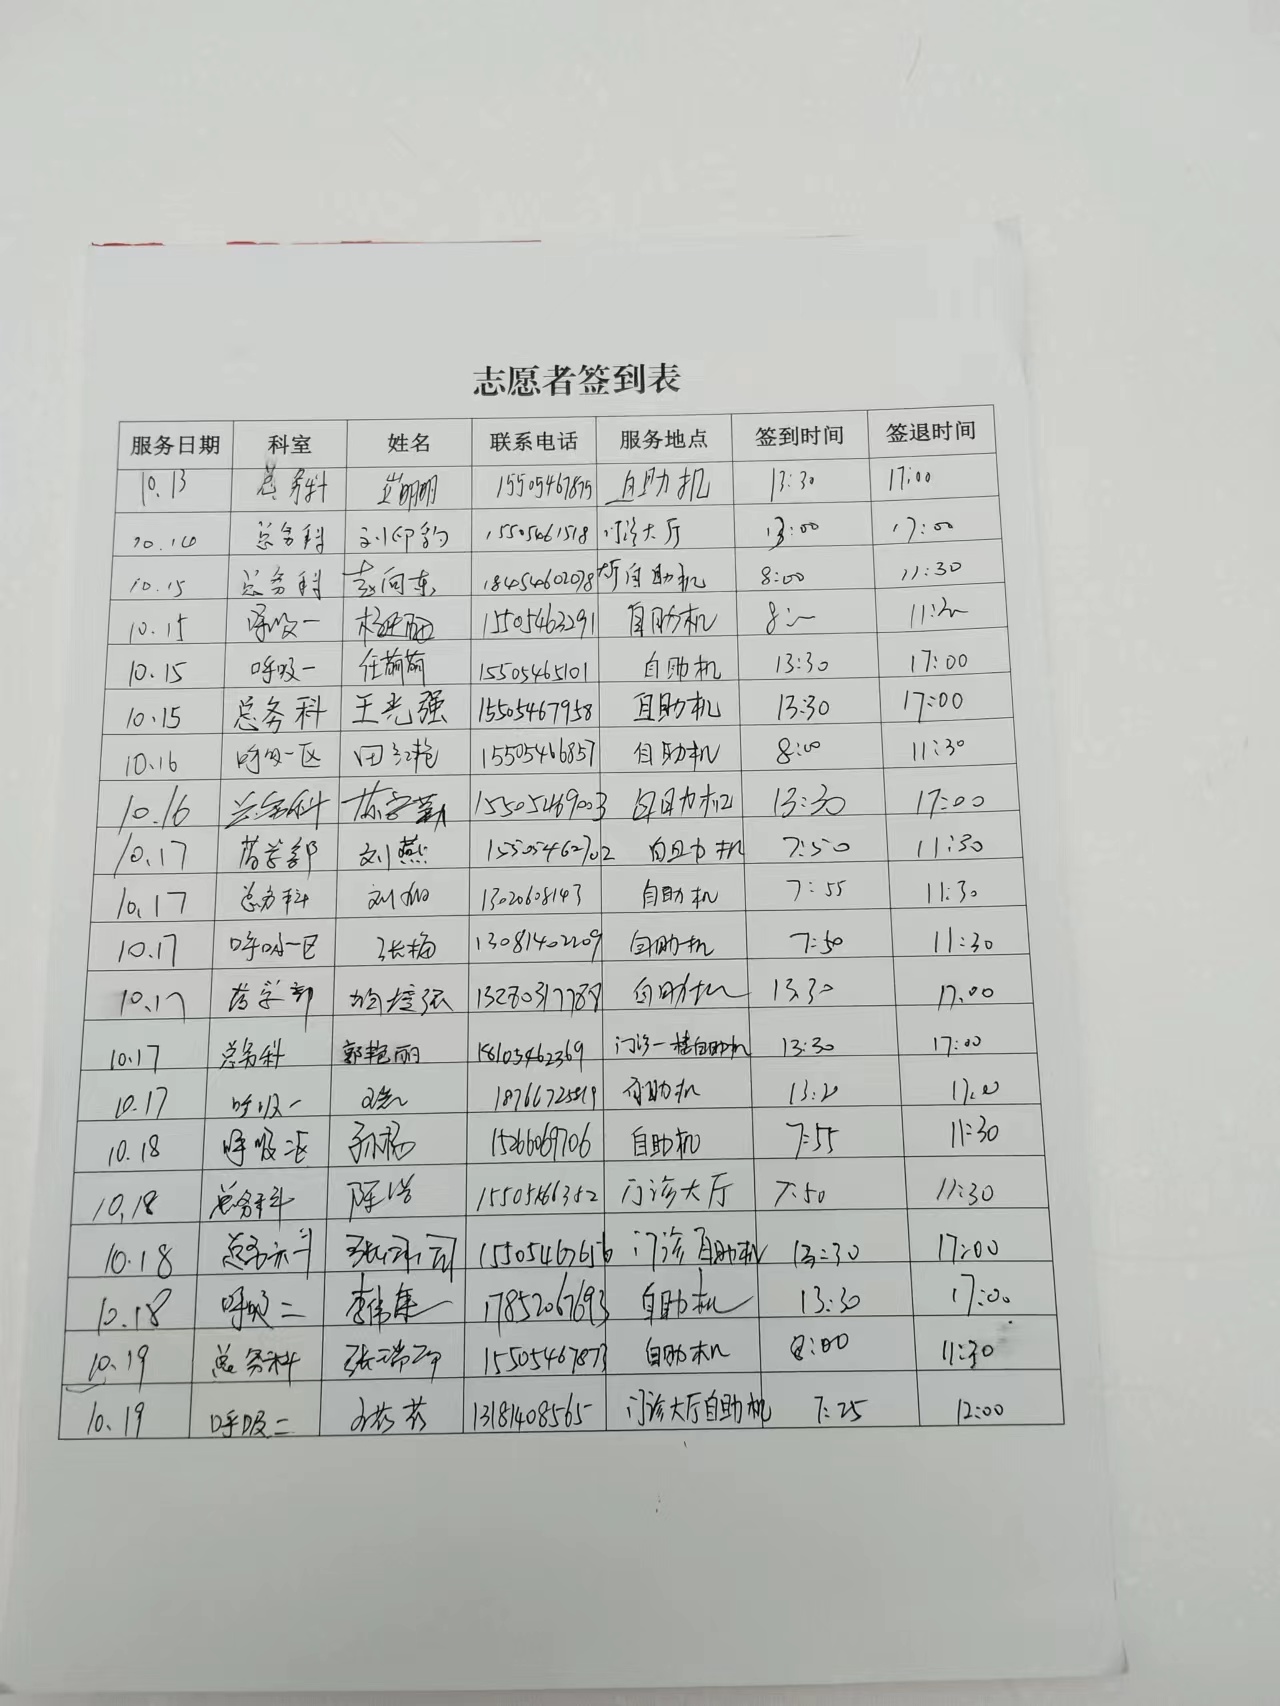 志愿者签到表
服务日期 科室 姓名 联系电话 服务地点 签到时间 签退时间
10.13 总务科 崔明明 15505467875 自助机 13:30 17:00
10.14 总务科 刘仰韵 15505461518 门诊大厅 13:00 17:00
10.15 总务科 赵向东 18454602078 大厅自助机 8:00 11:30
10.15 呼吸一 15505463291 自助机 8:00 11:30
10.15 呼吸一 任萌萌 15505465101 自助机 13:30 17:00
10.15 总务科 王光强 15505467958 自助机 13:30 17:00
10.16 呼吸一区 田红艳 15505466857 自助机 8:00 11:30
10.16 总务科 陈学勤 15505469003 自助机 13:30 17:00
10.17 药学部 刘燕 15505462702 自助机 7:50 11:30
10.17 总务科 刘 1302608143 自助机 7:55 11:30
10.17 呼吸一区 张梅 13081402209 自助机 7:50 11:30
10.17 药学部 13280317788 自助机 13:30 17:00
10.17 总务科 郭艳丽 18105462369 门诊一楼自助机 13:30 17:00
10.17 呼吸一 自助机 13:20 17:00
10.18 呼吸二区 孙杨 15266069706 自助机 7:55 11:30
10.18 总务科 陈浩 15505466352 门诊大厅 7:50 11:30
10.18 总务科 15505467656 门诊自助机 13:30 17:00
10.18 呼吸二 李倩 17852067693 自助机 13:30 17:00
10.19 总务科 张瑞 15505467873 自助机 8:00 11:30
10.19 呼吸二 13181408565 门诊大厅自助机 7:25 12:00